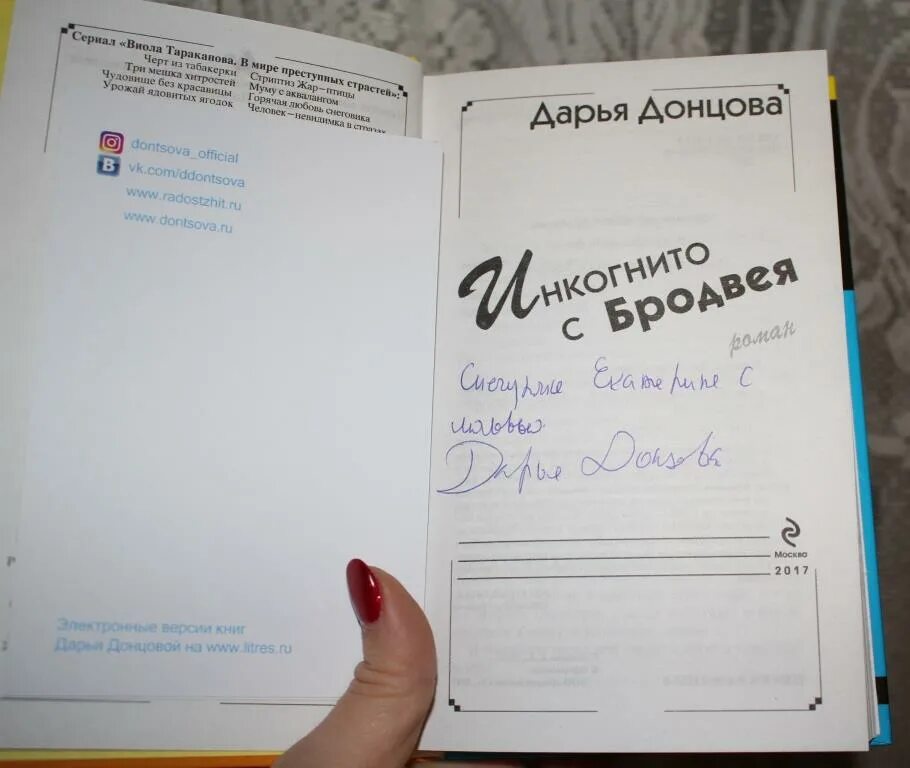 Сериал «Виола Тараканова. В мире преступных страстей»:
Черт из табакерки
Три мешка хитростей
Чудовище без красавицы
Урожай ядовитых ягодок
Стриптиз Жар-птицы
Муму с аквалангом
Горячая любовь снеговика
Человек-невидимка в стразах
dontsova_official
vk.com/ddontsova
www.radostzhit.ru
www.dontsova.ru
Электронные версии книг
Дарьи Донцовой на www.litres.ru
Дарья Донцова
Инкогнито
с Бродвея
роман
Снегурке Екатерине с
любовью
Дарья Донцова
Москва
2017